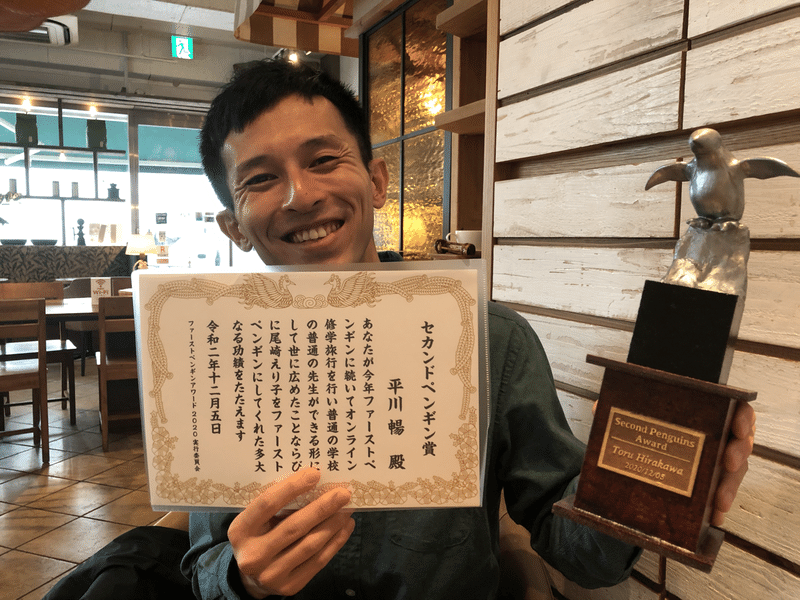 セカンドペンギン賞
平川 暢 殿
あなたが今年ファーストペ
ンギンに続いてオンライン
修学旅行を行い普通の学校
の普通の先生ができる形に
して世に広めたことならび
に尾崎えり子をファースト
ペンギンにしてくれた多大
なる功績をたたえます
令和二年十二月五日
ファーストペンギンアワード2020実行委員会
Second Penguins
Award
Toru Hirakawa
2020/12/05